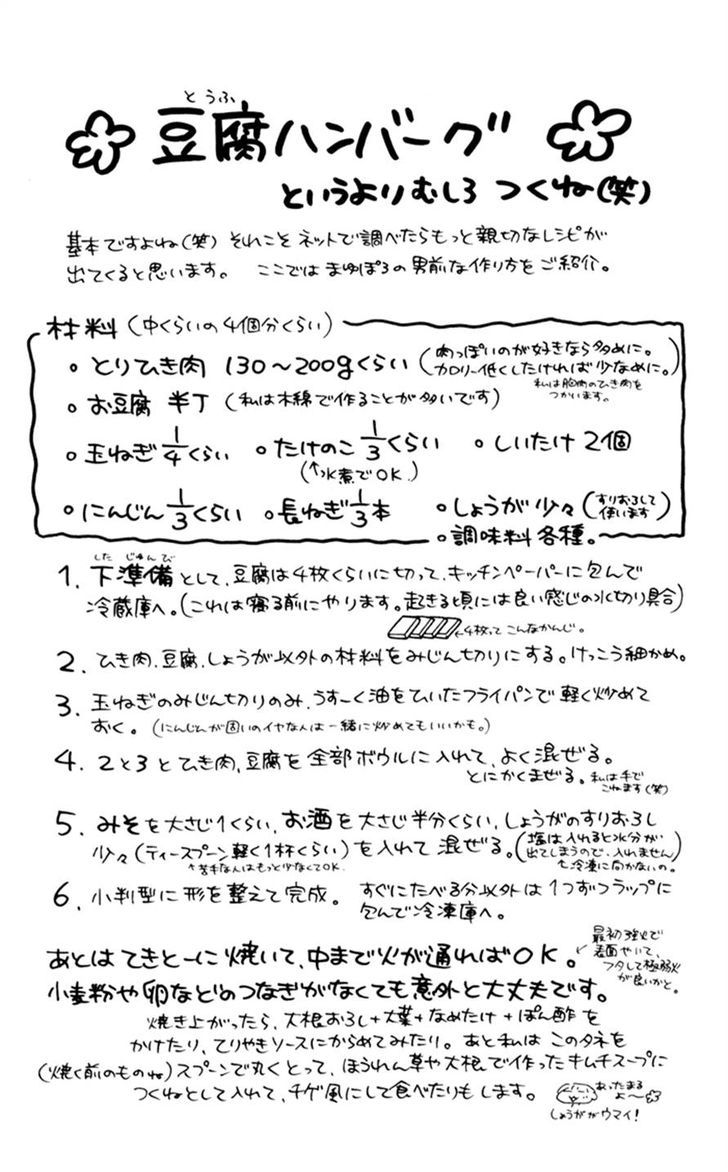 とうふ
豆腐ハンバーグ
というよりむしろ つくね(笑)
基本ですよね(笑) それこそ ネットで調べたらもっと親切なレシピが
出てくると思います。 ここではまゆぽろの男前な作り方をご紹介。
材料(中くらいの4個分くらい)
・とりひき肉 130〜200gくらい(肉っぽいのが好きなら多めに。
カロリー低くしたければ少なめに。)
私は胸肉のひき肉を
つかいます。
・お豆腐 半丁(私は木綿で作ることが多いです)
・玉ねぎ1/4くらい ・たけのこ1/3くらい ・しいたけ 2個
(↑水煮でOK.)
・にんじん1/3くらい ・長ねぎ1/3本 ・しょうが 少々(すりおろして
使います)
・調味料各種。
した じゅんび
1. 下準備として、豆腐は4枚くらいに切って、キッチンペーパーに包んで
冷蔵庫へ。(これは寝る前にやります。起きる頃には良い感じの水切り具合)
←4枚って こんなかんじ。
2. ひき肉、豆腐、しょうが以外の材料をみじん切りにする。けっこう細かめ。
3. 玉ねぎのみじん切りのみ、うすーく油をひいたフライパンで軽く炒めて
おく。(にんじんが固いのイヤな人は一緒に炒めてもいいかも。)
4. 2と3とひき肉、豆腐を全部ボウルに入れて、よく混ぜる。
とにかくまぜる。私は手で
こねます(笑)
5. みそを大さじ1くらい、お酒を大さじ半分くらい、しょうがのすりおろし
少々(ティースプーン軽く1杯くらい)を入れて 混ぜる。(塩は入れると水分が
出てしまうので、入れません)
↑苦手な人はもっと少なくてOK.
↑冷凍に向かないの。
6. 小判型に形を整えて完成。 すぐにたべる分以外は1つずつラップに
包んで冷凍庫へ。
あとはてきとーに焼いて、中まで火が通ればOK。
↙最初強火で
表面やいて、
フタして極弱火
が良いかと。
小麦粉や卵などのつなぎがなくても意外と大丈夫です。
焼き上がったら、大根おろし+大葉+なめたけ+ぽん酢を
かけたり、てりやきソースにからめてみたり。あと私は このタネを
(焼く前のものね)スプーンで丸くとって、ほうれん草や大根で作ったキムチスープに
つくねとして入れて、チゲ風にして食べたりもします。
あったまる
よ〜
しょうががウマイ!